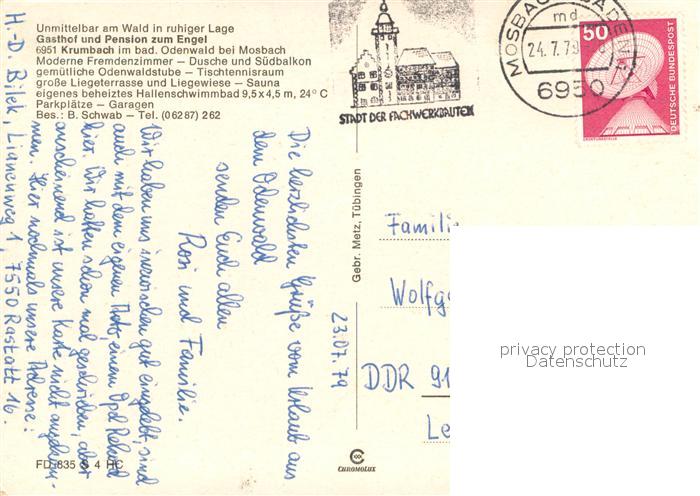 Unmittelbar am Wald in ruhiger Lage
Gasthof und Pension zum Engel
6951 Krumbach im bad. Odenwald bei Mosbach
Moderne Fremdenzimmer – Dusche und Südbalkon
gemütliche Odenwaldstube – Tischtennisraum
große Liegeterrasse und Liegewiese – Sauna
eigenes beheiztes Hallenschwimmbad 9,5 x 4,5 m, 24° C
Parkplätze – Garagen
Bes.: B. Schwab – Tel. (06287) 262
STADT DER FACHWERKBAUTEN
MOSBACH, BADEN
md
24.7.79
6950
50
DEUTSCHE BUNDESPOST
ERDFUNKSTELLE
Die herzlichsten Grüße vom Urlaub aus
dem Odenwald
senden Euch allen
Rosi und Familie.
Wir haben uns inzwischen gut eingelebt, sind
auch mit dem eigenen Auto, einem Opel Rekord
hier. Wir hatten schon mal geschrieben, aber
anscheinend ist unsere Karte nicht angekom-
men. Hier nochmals unsere Adresse:
H.-D. Bilek, Lianenweg 1, 7550 Rastatt 16.
23.07.79
Gebr. Metz, Tübingen
Famili
Wolfga
DDR 91
Le
privacy protection
Datenschutz
FD 835 S 4 HC
CHROMOLUX